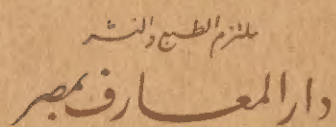 ملتزم الطبع والنشر
دار المعارف بمصر